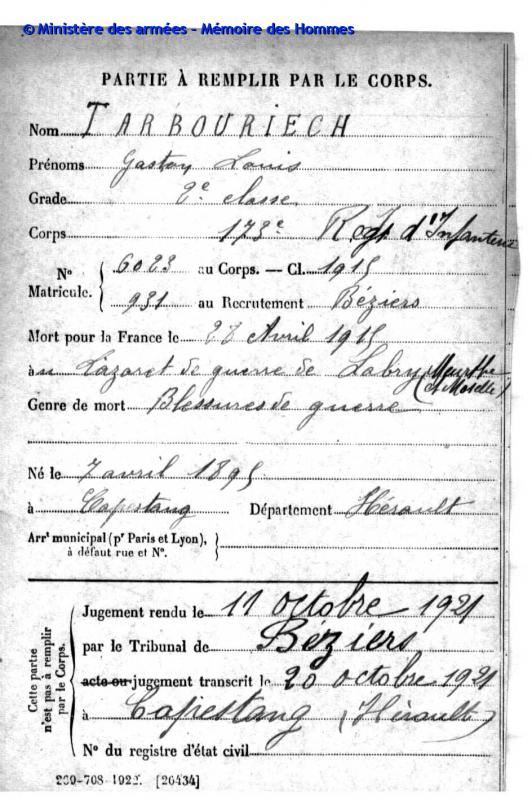 © Ministère des armées - Mémoire des Hommes
PARTIE À REMPLIR PAR LE CORPS.
Nom TARBOURIECH
Prénoms Gaston Louis
Grade 2e classe
Corps 173e Regt d'Infanterie
N° Matricule. { 6023 au Corps. — Cl. 1915
931 au Recrutement Béziers
Mort pour la France le 28 Avril 1915
à au Lazaret de guerre de Labry (Meurthe et Moselle)
Genre de mort Blessures de guerre
Né le 7 avril 1895
à Capestang Département Hérault
Arrt municipal (pr Paris et Lyon), }
à défaut rue et N°.
Cette partie n'est pas à remplir par le Corps.
Jugement rendu le 11 octobre 1921
par le Tribunal de Béziers
acte ou jugement transcrit le 20 octobre 1921
à Capestang (Hérault)
N° du registre d'état civil
269-708-1922. [26434]